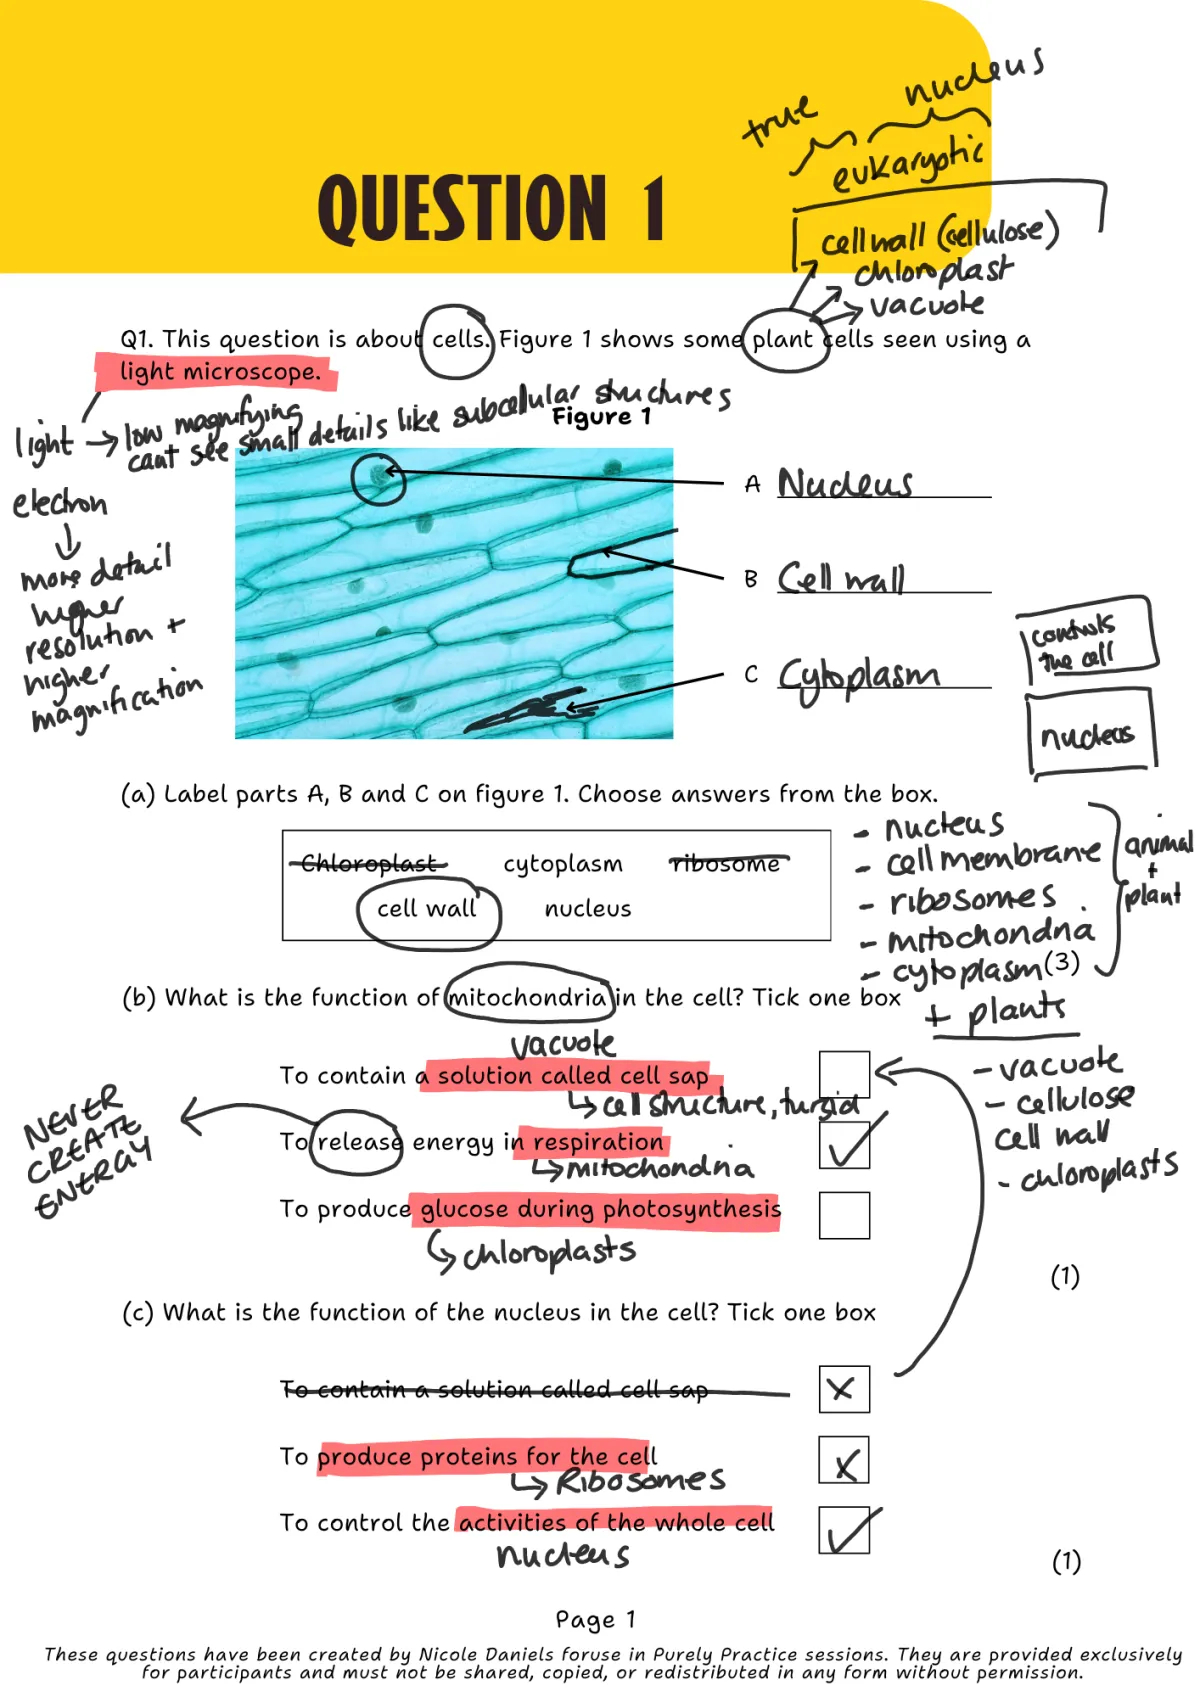 nucleus
true
eukaryotic
QUESTION 1
cell wall (cellulose)
chloroplast
vacuole
Q1. This question is about cells. Figure 1 shows some plant cells seen using a
light microscope.
light → low magnifying
cant see small details like subcellular structures
Figure 1
electron
more detail
higher
resolution +
higher
magnification
A Nucleus
B Cell wall
C Cytoplasm
controls
the cell
nucleus
(a) Label parts A, B and C on figure 1. Choose answers from the box.
Chloroplast cytoplasm ribosome
cell wall nucleus
- nucleus
- cell membrane
- ribosomes
- mitochondria
- cytoplasm
animal
+
plant
(3)
(b) What is the function of mitochondria in the cell? Tick one box
+ plants
- vacuole
- cellulose
cell wall
- chloroplasts
vacuole
To contain a solution called cell sap
↳ cell structure, turgid
To release energy in respiration ✓
↳ mitochondria
NEVER
CREATE
ENERGY
To produce glucose during photosynthesis
↳ chloroplasts
(1)
(c) What is the function of the nucleus in the cell? Tick one box
To contain a solution called cell sap x
To produce proteins for the cell x
↳ Ribosomes
To control the activities of the whole cell ✓
nucleus
(1)
Page 1
These questions have been created by Nicole Daniels foruse in Purely Practice sessions. They are provided exclusively
for participants and must not be shared, copied, or redistributed in any form without permission.